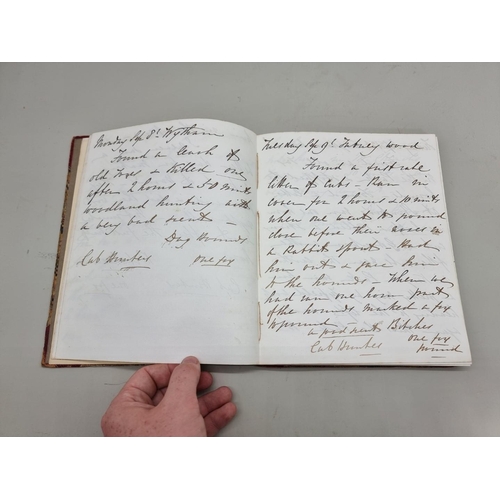 Monday Sep 8th Wytham
Found a leash of
old Foxes & killed one
after 2 hours & 50 mints
woodland hunting with
a very bad scent —
Dog Hounds
Cub Hunter one fox
Tuesday Sep 9th Tubney wood
Found a first rate
litter of Cubs — Ran in
cover for 2 hours & 10 mints
when one went to ground
close before their noses in
a Rabbit spout Had
him out & gave him
to the hounds — When we
had run one hour part
of the hounds marked a fox
to ground
a good scent Bitches
Cub Hunter one fox
ground